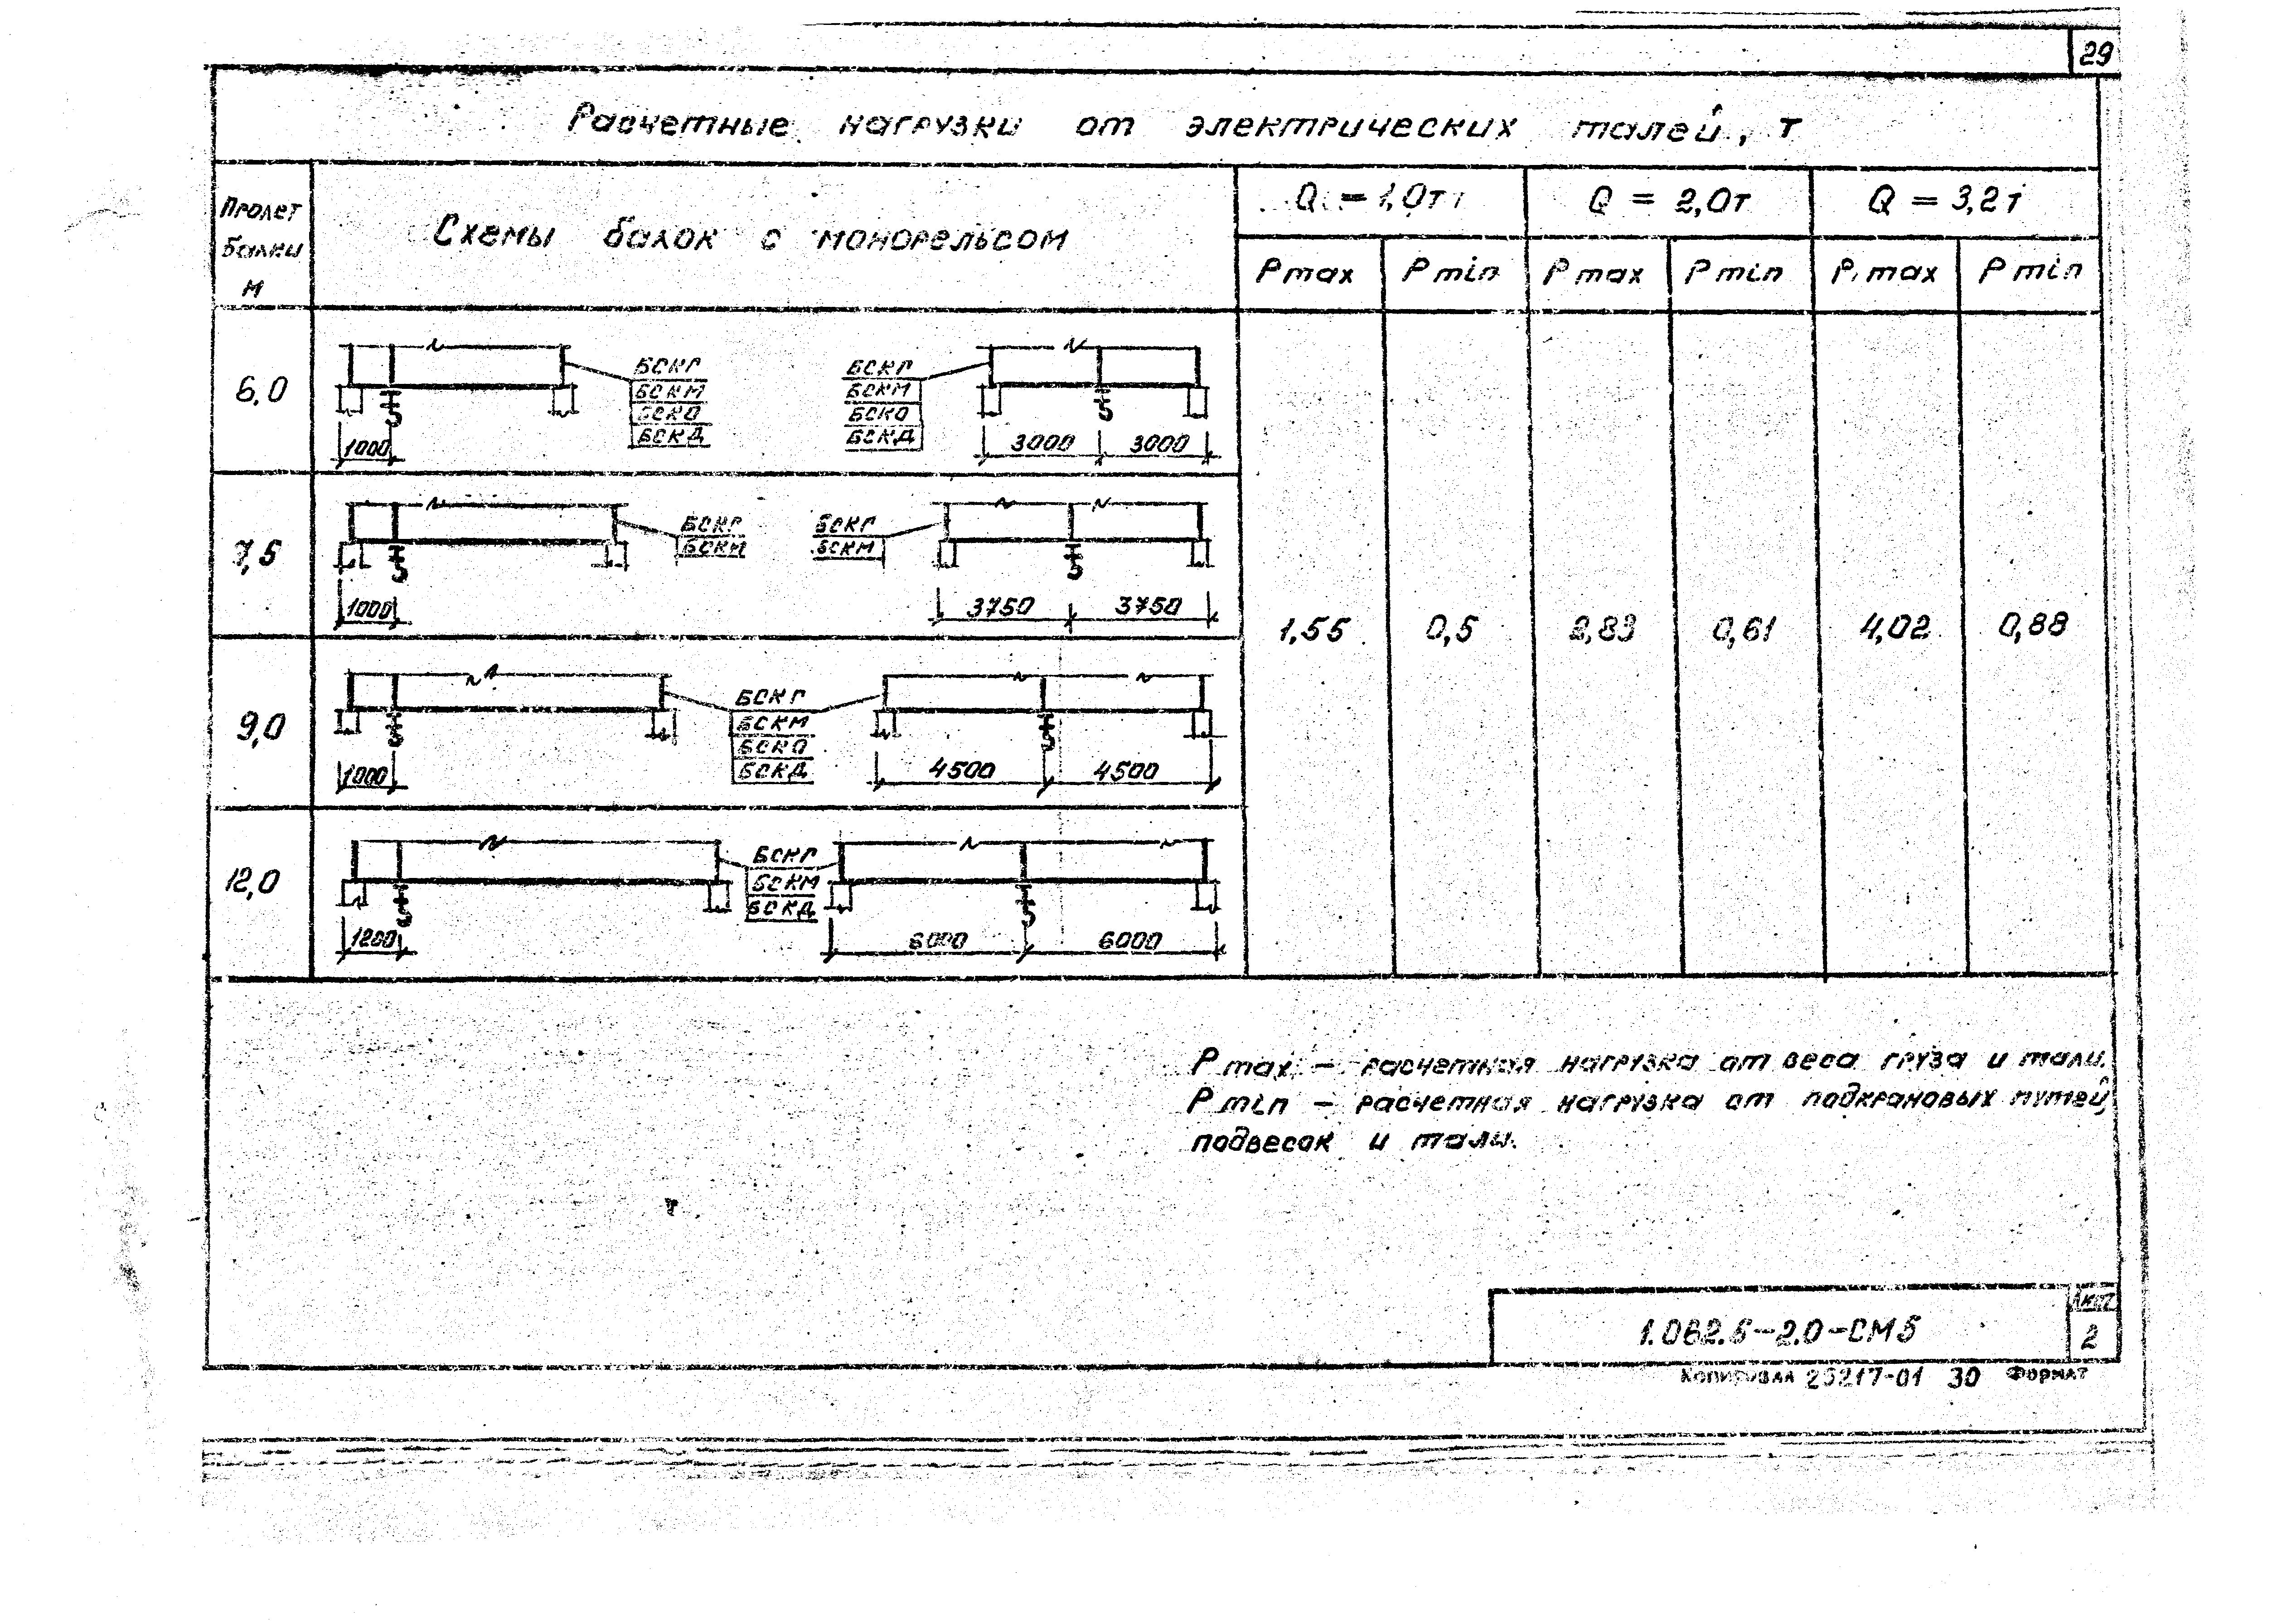 29
Расчетные нагрузки от электрических талей, т
Пролет балки м
Схемы балок с монорельсом
Q = 1,0т
Q = 2,0т
Q = 3,2т
P max
P min
P max
P min
P max
P min
6,0
БСКГ
БСКМ
БСКО
БСКД
1000
БСКГ
БСКМ
БСКО
БСКД
3000
3000
7,5
БСКГ
БСКМ
1000
БСКГ
БСКМ
3750
3750
1,55
0,5
2,83
0,61
4,02
0,88
9,0
БСКГ
БСКМ
БСКО
БСКД
1000
4500
4500
12,0
БСКГ
БСКМ
БСКД
1200
6000
6000
P max – расчетная нагрузка от веса груза и тали.
P min – расчетная нагрузка от подкрановых путей
подвесок и тали.
Лист
1.062.5-2.0-СМ5
2
Копировал 25217-01 30 Формат